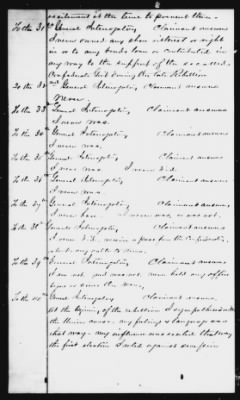 excitement at the time to prevent there
To the 31st General Interrogatory, Claimant answers
I never owned any share interest or right
in or to any bonds loan or contributed in
any way to the support of the so-called
Confederate Govt during the late Rebellion
To the 32d General Interrogatory, Claimant answers
Never
To the 33 General Interrogatory, Claimant answers
I never was.
To the 34 General Interrogatory, Claimant answers
I never was.
To the 35 General Interrogatory, Claimant answers
I never was I never did.
To the 36 General Interrogatory, Claimant answers
I never was
To the 37 General Interrogatory, Claimant answers
I was not.
To the 38 General Interrogatory, Claimant answers
I never did receive a pass from the Confederates
To the 39 General Interrogatory, Claimant answers
I am not and was not never held any office
since the war.
To the 40 General Interrogatory Claimant answers
At the beginning of the rebellion I sympathised with
the Union cause my feelings & language was
that way my influence was exerted that way
the first election I voted against secession